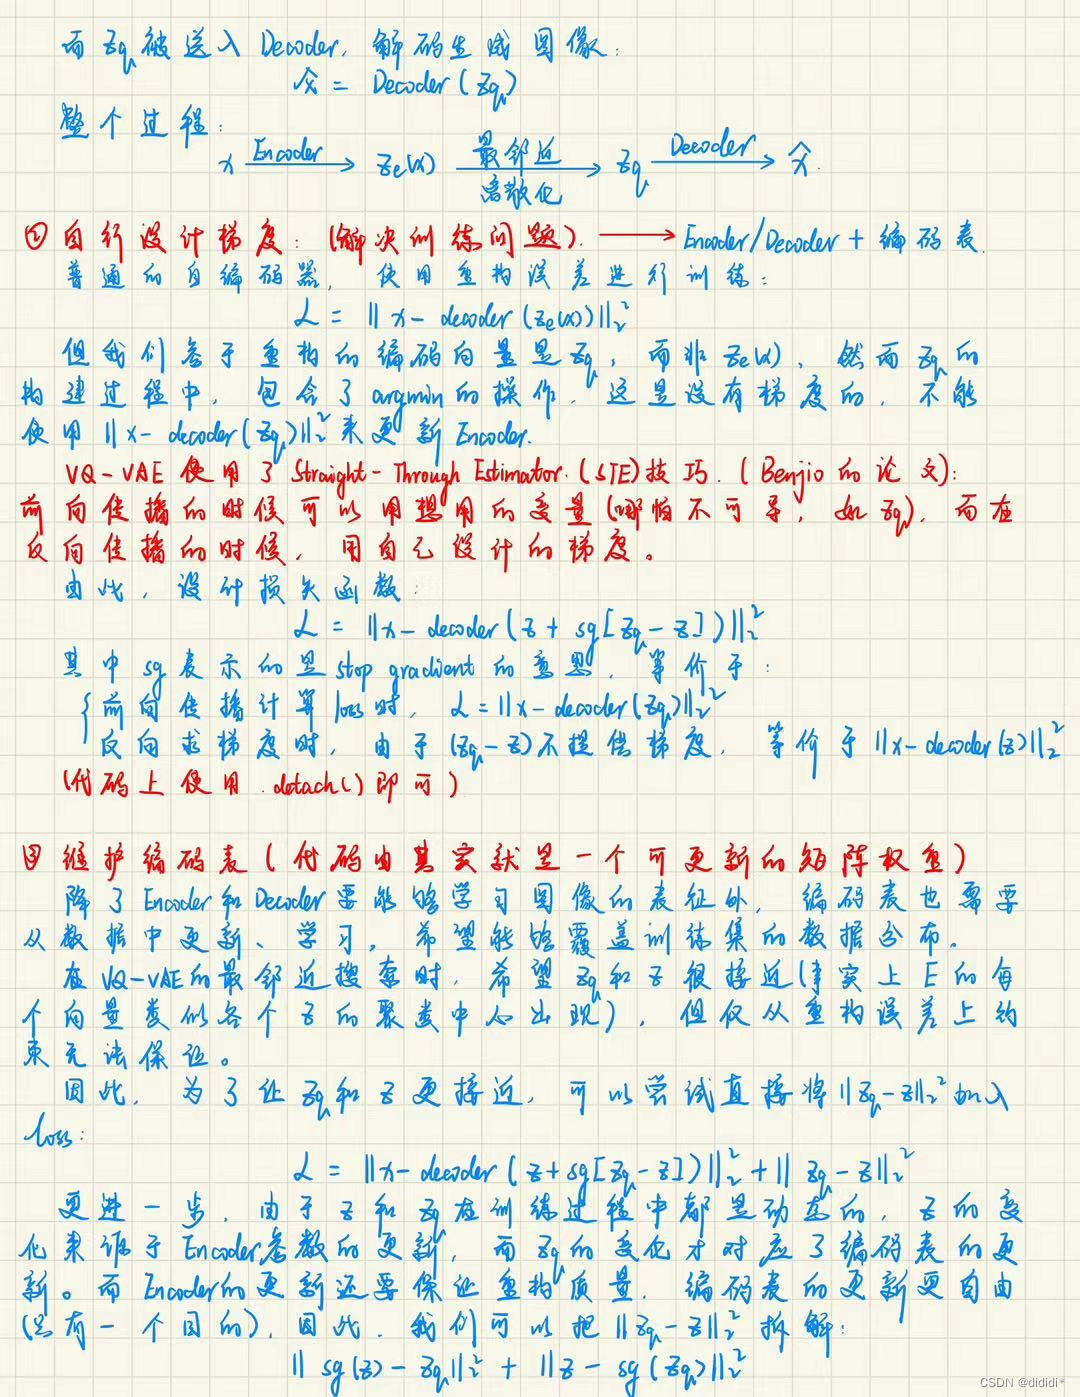 而 zq 被送入 Decoder, 解码生成图像:
x̂ = Decoder(zq)
整个过程:
x —Encoder→ ze(x) —最邻近 离散化→ zq —Decoder→ x̂.
② 自行设计梯度: (解决训练问题). → Encoder/Decoder + 编码表.
普通的自编码器, 使用重构误差进行训练:
L = ||x - decoder(ze(x))||₂²
但我们参于重构的编码向量是zq, 而非 ze(x), 然而 zq 的
构建过程中, 包含了 argmin 的操作, 这是没有梯度的, 不能
使用 ||x - decoder(zq)||₂² 来更新 Encoder.
VQ-VAE 使用了 Straight-Through Estimator.(STE)技巧.(Benjio 的论文):
前向传播的时候可以用想用的变量(哪怕不可导, 如 zq), 而在
反向传播的时候, 用自己设计的梯度。
由此, 设计损失函数:
L = ||x - decoder(z + sg[zq - z])||₂²
其中 sg 表示的是 stop gradient 的意思, 等价于:
{ 前向传播计算 loss 时, L = ||x - decoder(zq)||₂²
反向求梯度时, 由于 (zq - z) 不提供梯度, 等价于 ||x - decoder(z)||₂²
(代码上使用 .detach() 即可)
③ 维护编码表 (代码由其实就是一个可更新的矩阵权重)
除了 Encoder 和 Decoder 要能够学习图像的表征外, 编码表也需要
从数据中更新、学习, 希望能够覆盖训练集的数据分布。
在 VQ-VAE 的最邻近搜索时, 希望 zq 和 z 很接近(事实上 E 的每
个向量类似各个 z 的聚类中心出现), 但仅从重构误差上约
束无法保证。
因此, 为了让 zq 和 z 更接近, 可以尝试直接将 ||zq - z||₂² 加入
loss:
L = ||x - decoder(z + sg[zq - z])||₂² + ||zq - z||₂²
更进一步, 由于 z 和 zq 在训练过程中都是动态的, z 的变
化来源于 Encoder 参数的更新, 而 zq 的变化才对应了编码表的更
新。而 Encoder 的更新还要保证重构质量, 编码表的更新更自由
(只有一个目的), 因此, 我们可以把 ||zq - z||₂² 拆解:
|| sg(z) - zq||₂² + ||z - sg(zq)||₂²
CSDN @dididi*